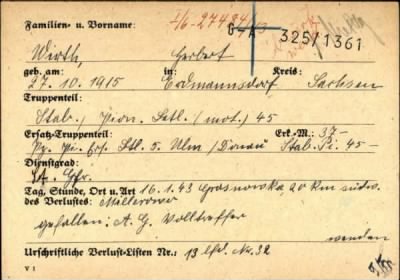 Familien- u. Vorname:
G A 325/1361
Wirth, Herbert
geb. am: in: Kreis:
27.10.1915 Erdmannsdorf Sachsen
Truppenteil:
Stab / Pion. Btl. (mot.) 45
Ersatz-Truppenteil: Erk.-M.: 37-
Pi. Ers. Btl. 5 Ulm / Donau Stab. Pi. 45-
Dienstgrad:
Gfr.
Tag, Stunde, Ort u. Art 16.1.43 20 km südw.
des Verlustes: Millerowo
gefallen: A. G. Volltreffer
wenden
Urschriftliche Verlust-Listen Nr.: 13 lfd. Nr. 32
V 1